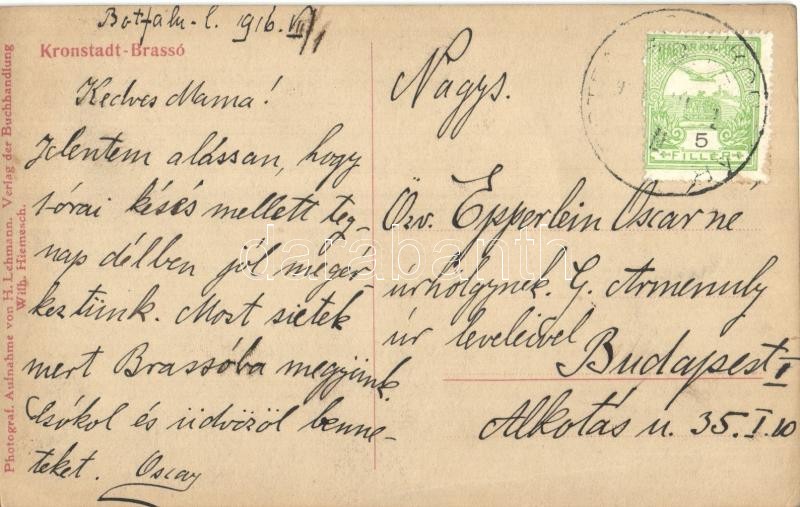 Botfalu-l. 1916. VII/1
Kronstadt-Brassó
Kedves Mama!
Jelentem alássan, hogy
órai késés mellett teg-
nap délben jól megér-
keztünk. Most sietek
mert Brassóba megyünk.
Csókol és üdvözöl benne-
teket. Oscar
Nagys.
Özv. Epperlein Oscarne
úrhölgynek. G. Armenuly
úr leveleivel
Budapest I
Alkotás u. 35. I. 10
MAGYAR KIR. POSTA
5
FILLÉR
Photograf. Aufnahme von H. Lehmann. Verlag der Buchhandlung
Wilh. Hiemesch.
darabanth